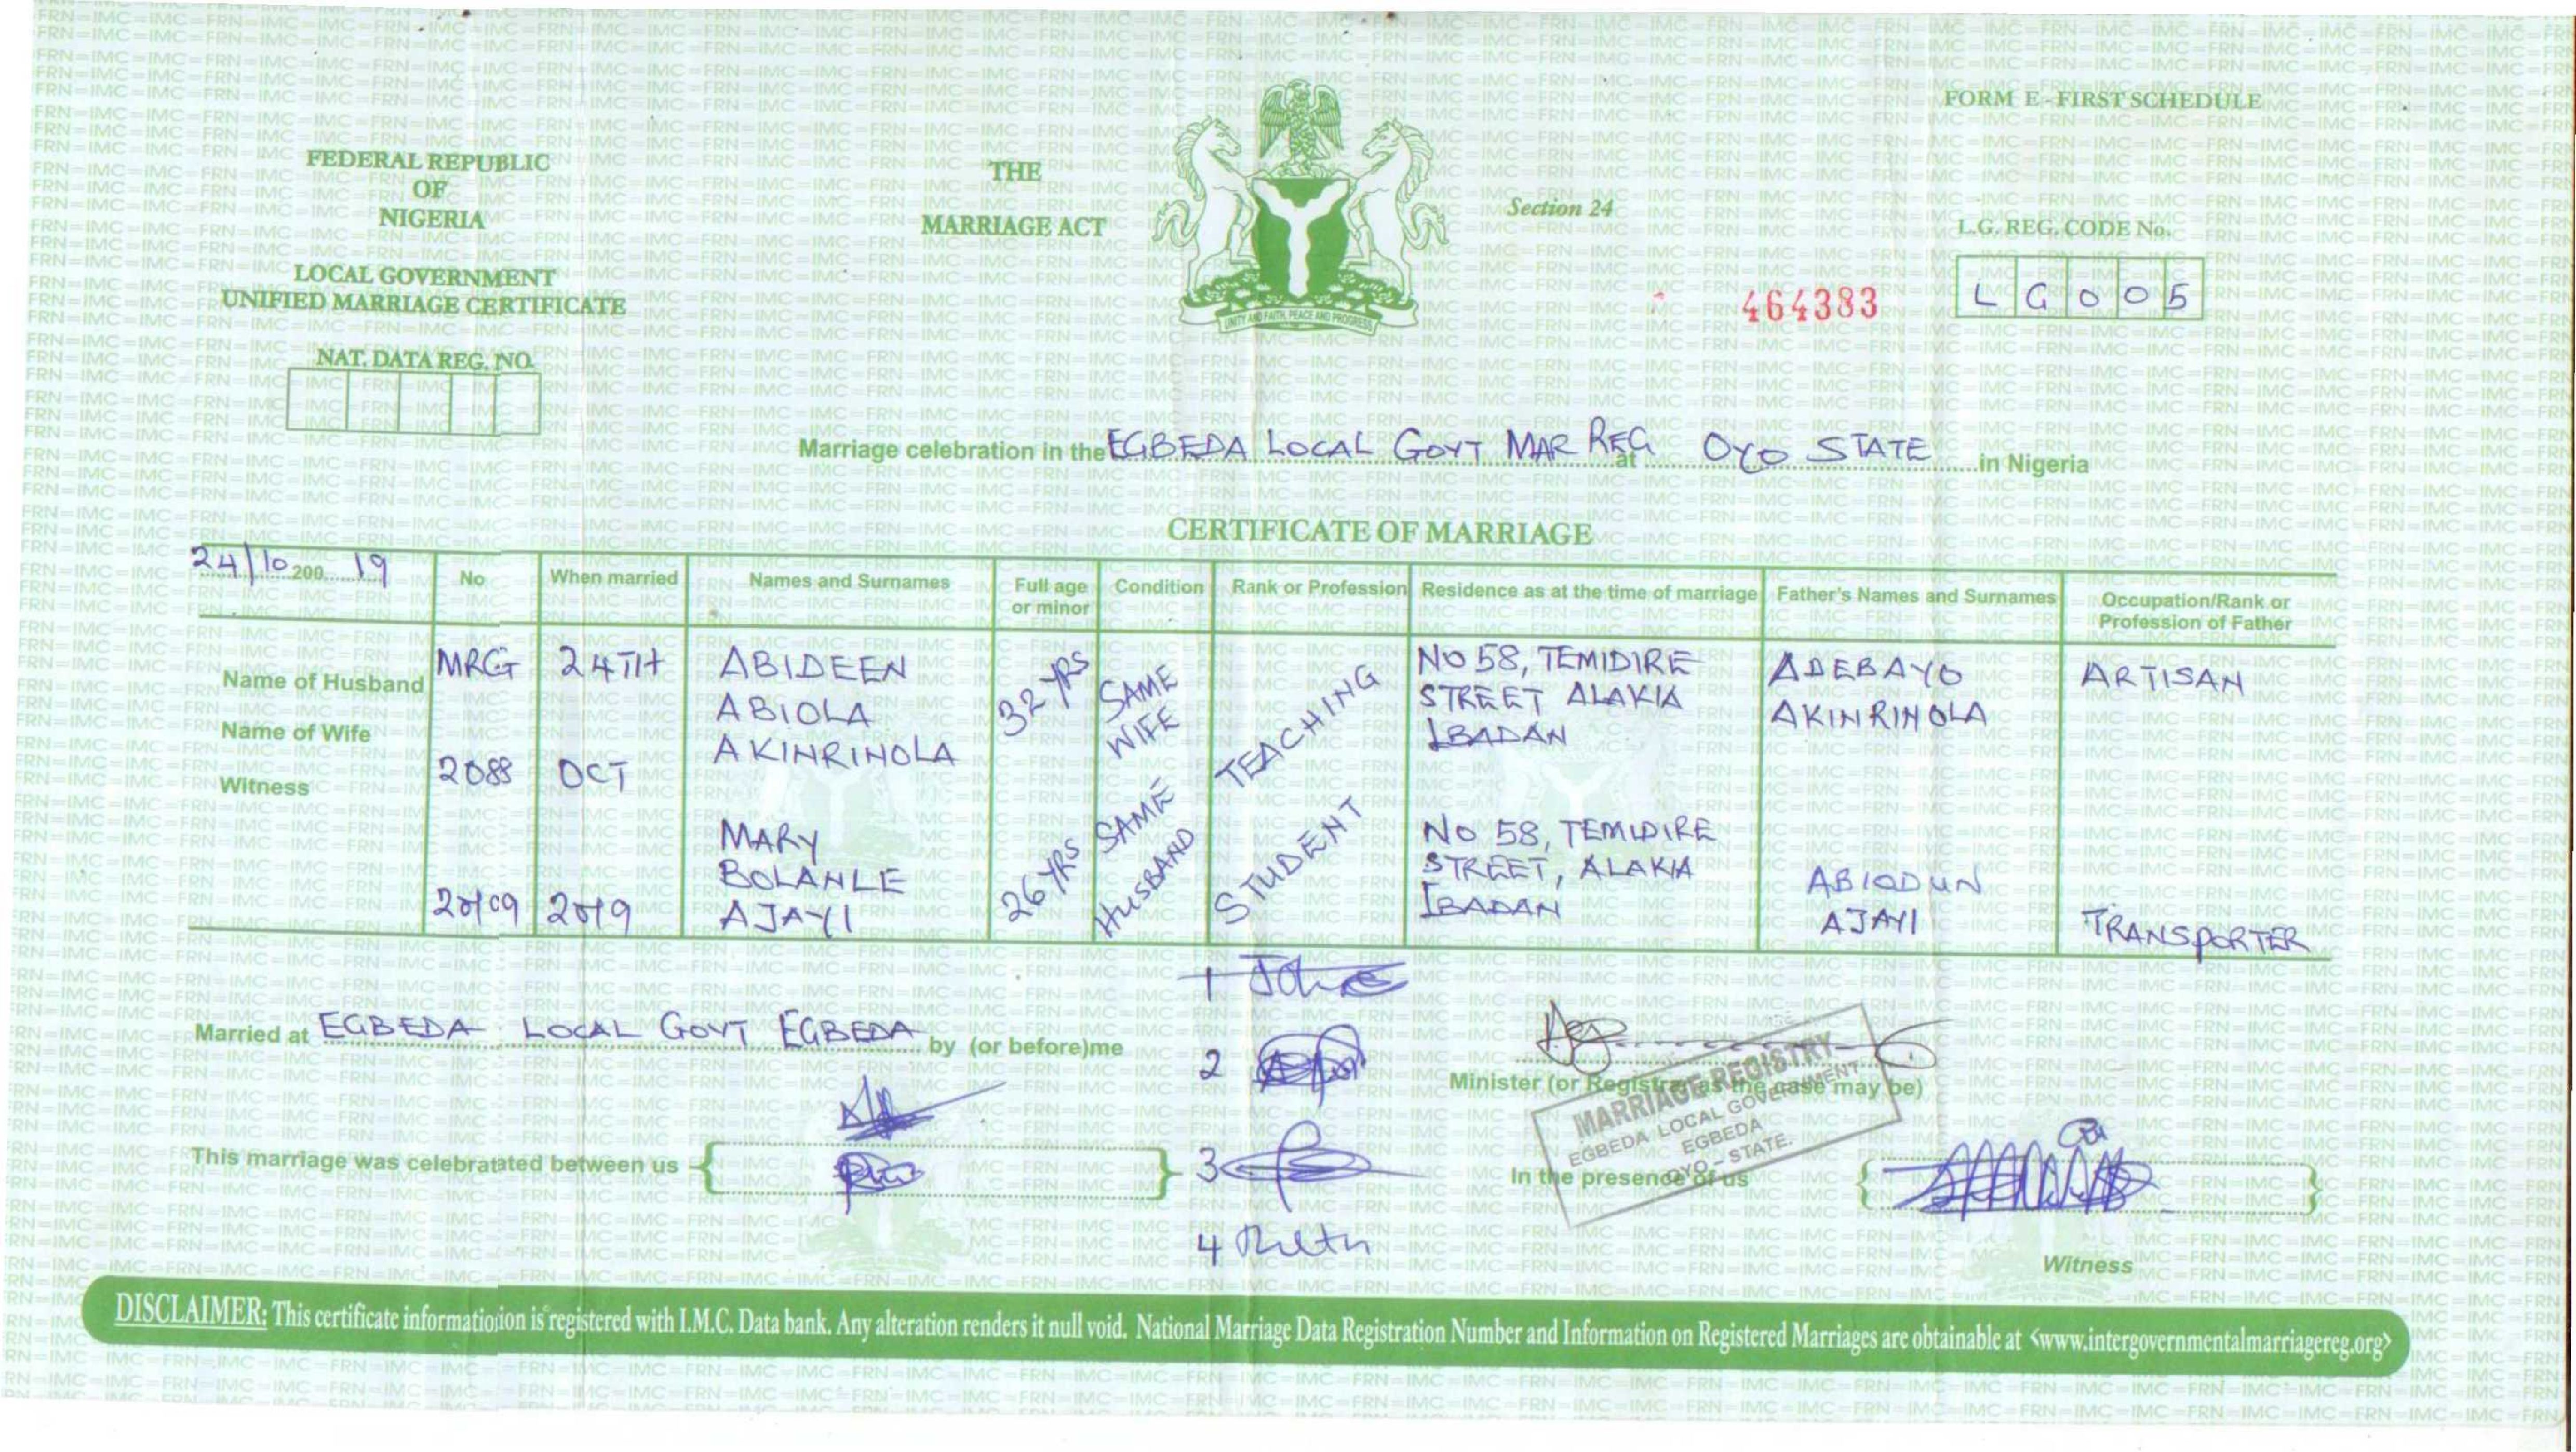 FORM E - FIRST SCHEDULE
FEDERAL REPUBLIC
OF
NIGERIA
THE
MARRIAGE ACT
Section 24
L.G. REG. CODE No.
LOCAL GOVERNMENT
UNIFIED MARRIAGE CERTIFICATE
UNITY AND FAITH, PEACE AND PROGRESS
464383
L G 0 0 5
NAT. DATA REG. NO.
Marriage celebration in the EGBEDA LOCAL GOVT MAR REG at OYO STATE in Nigeria
CERTIFICATE OF MARRIAGE
24/10 200 19
No
When married
Names and Surnames
Full age
or minor
Condition
Rank or Profession
Residence as at the time of marriage
Father's Names and Surnames
Occupation/Rank or
Profession of Father
Name of Husband
Name of Wife
Witness
MRG
2088
24TH
OCT
2019
ABIDEEN
ABIOLA
AKINRINOLA
32 YRS
SAME
WIFE
TEACHING
NO 58, TEMIDIRE
STREET ALAKIA
IBADAN
ADEBAYO
AKINRINOLA
ARTISAN
MARY
BOLANLE
AJAYI
26 YRS
SAME
HUSBAND
STUDENT
NO 58, TEMIDIRE
STREET, ALAKIA
IBADAN
ABIODUN
AJAYI
TRANSPORTER
Married at EGBEDA LOCAL GOVT EGBEDA by (or before)me
1
2
3
4
Minister (or Registrar as the case may be)
MARRIAGE REGISTRY
EGBEDA LOCAL GOVERNMENT
EGBEDA
OYO - STATE.
This marriage was celebratated between us
In the presence of us
Witness
DISCLAIMER: This certificate informatioion is registered with I.M.C. Data bank. Any alteration renders it null void. National Marriage Data Registration Number and Information on Registered Marriages are obtainable at <www.intergovernmentalmarriagereg.org>